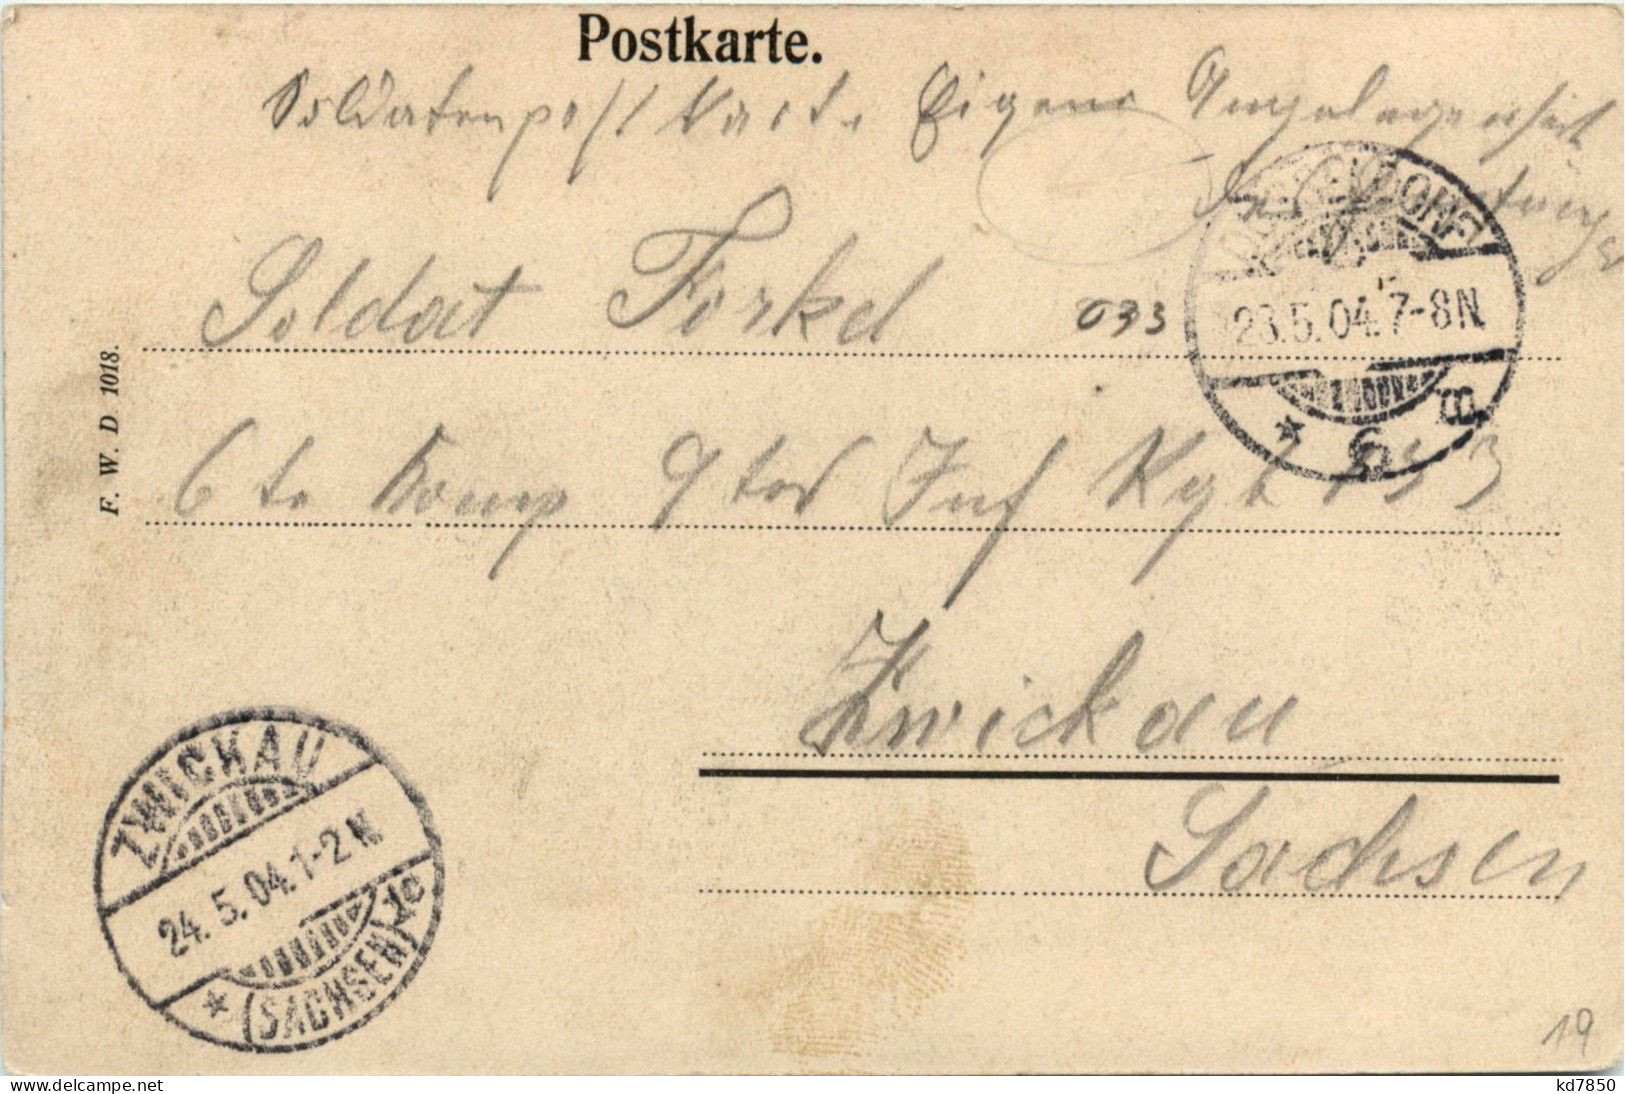 Postkarte.
Soldatenpostkarte Eigene Angelegenheit
des Empfängers
Soldat Forkel 033
6te Komp 9ter Inf Rgt 133
Zwickau
Sachsen
F. W. D 1018.
23.5.04.7-8N
* 6 B
ZWICKAU
24.5.04.1-2N
* (SACHSEN) 1c
19
kd7850